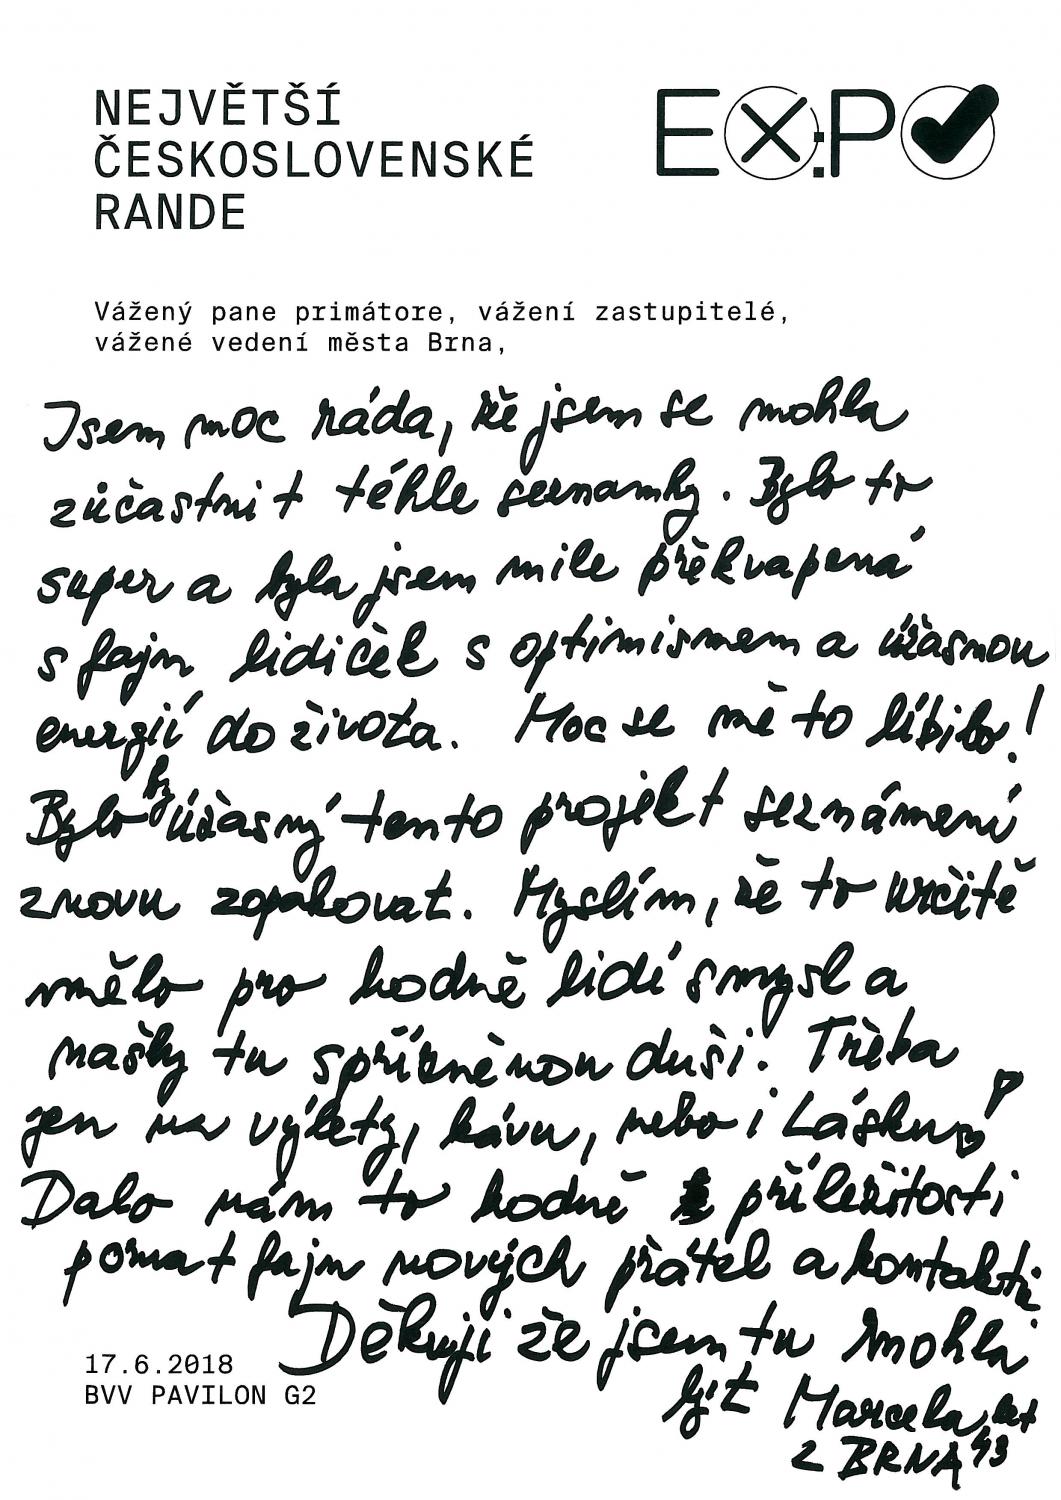 NEJVĚTŠÍ
ČESKOSLOVENSKÉ
RANDE
EX:PO
Vážený pane primátore, vážení zastupitelé,
vážené vedení města Brna,
Jsem moc ráda, že jsem se mohla
zúčastnit téhle seznamky. Bylo to
super a byla jsem mile překvapená
s fajn lidiček s optimismem a úžasnou
energií do života. Moc se mě to líbilo!
Bylo by úžasný tento projekt seznámení
znovu zopakovat. Myslím, že to určitě
mělo pro hodně lidí smysl a
našly tu spřízněnou duši. Třeba
jen na výlety, kávu, nebo i Lásku♡!
Dalo nám to hodně příležitosti
poznat fajn nových přátel a kontaktů
Děkuji že jsem tu mohla
být Marcela let
z BRNA 43
17.6.2018
BVV PAVILON G2